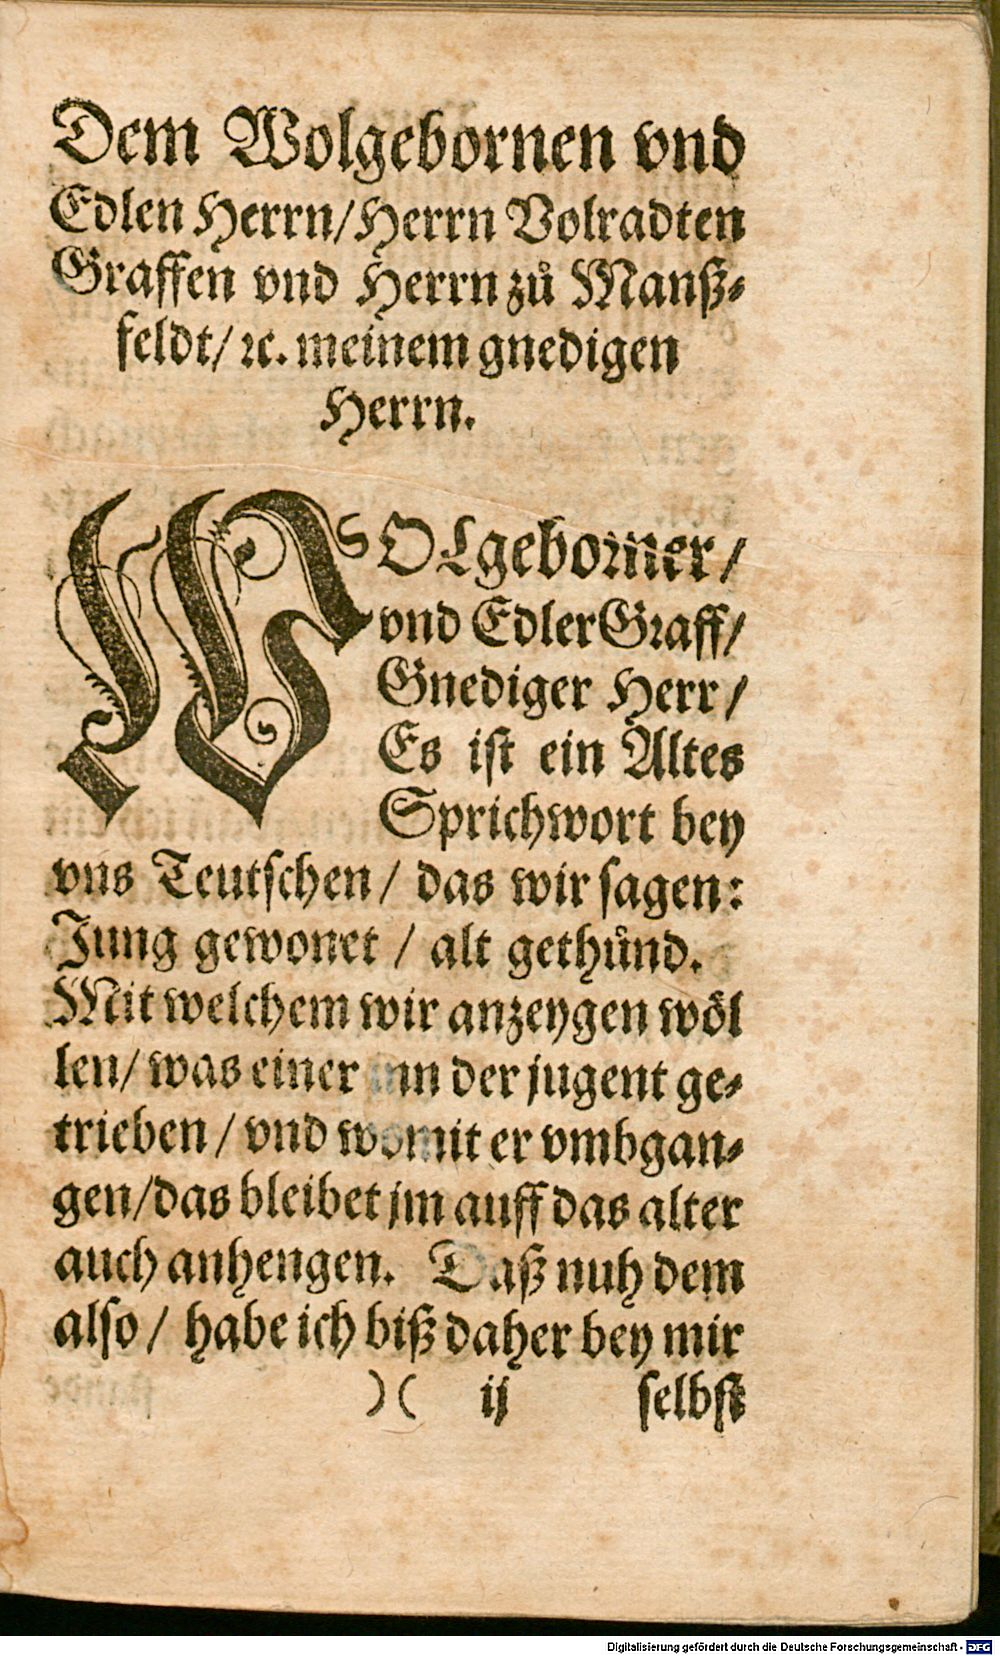 Dem Wolgebornen vnd
Edlen Herrn/Herrn Volradten
Graffen vnd Herrn zů Manß⸗
feldt/ ꝛc. meinem gnedigen
Herrn.
WOLgeborner/
vnd Edler Graff/
Gnediger Herr/
Es ist ein Altes
Sprichwort bey
vns Teutschen/ das wir sagen:
Jung gewonet / alt gethůnd.
Mit welchem wir anzeygen wöl
len/ was einer inn der jugent ge⸗
trieben / vnd womit er vmbgan⸗
gen/das bleibet jm auff das alter
auch anhengen. Daß nuh dem
also / habe ich biß daher bey mir
)( ij selbst
Digitalisierung gefördert durch die Deutsche Forschungsgemeinschaft - DFG